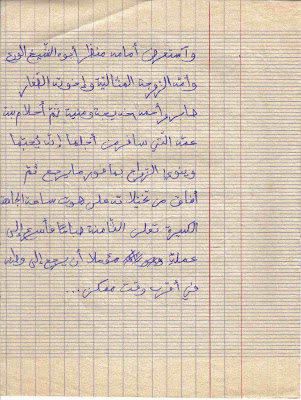 وآستعرض أمامه منظر أبوه الشيخ الورع
وأمّه الزوجة المثالية وإخوته الصّغار
وميمية ثمّ أحلام بنت
عمّه الّتي سافر من أجلها إنّه يُحبّها
وينوي الزواج بها فور ما يرجع ثمّ
أفاق من تخيّلاته على صوت ساعة الحائط
الكبيرة تعلن الثّامنة صباحًا فأسرع إلى
عمله مؤملا أن يرجع إلى وطنه
في أقرب وقت ممكن...